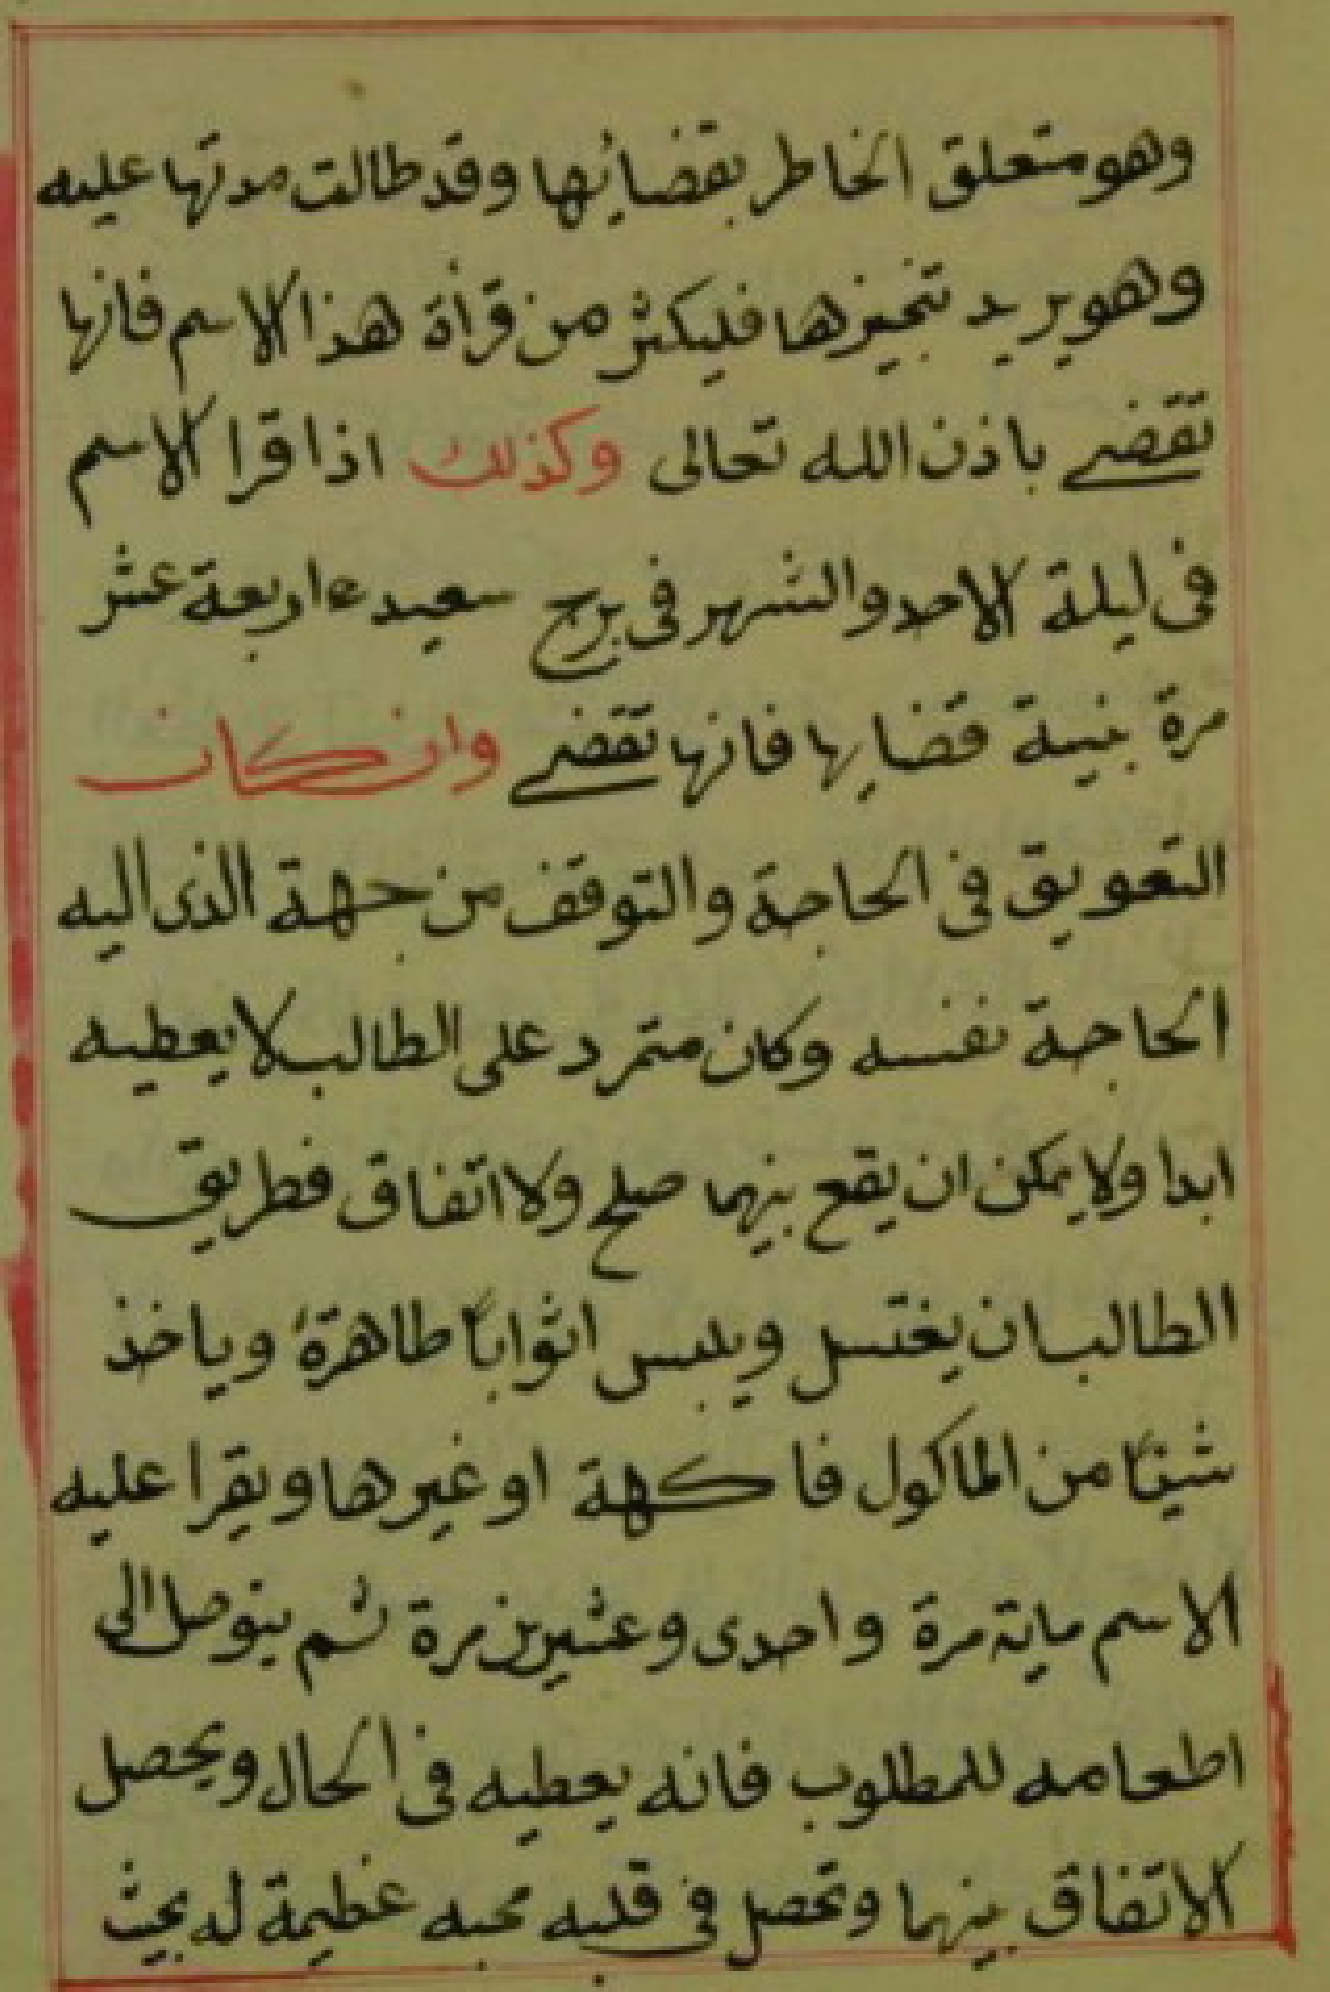 وهو متعلق الخاطر بقضائها وقد طالت مدتها عليه
وهو يريد تنجيزها فليكثر من قرأة هذا الاسم فانها
تقضى باذن الله تعالى وكذلك اذا قرا الاسم
فى ليلة الاحد والشهر فى برج سعيد اربعة عشر
مرة بنية قضايها فانها تقضى وان كان
التعويق فى الحاجة والتوقف من جهة الذى اليه
الحاجة نفسه وكان متمرد على الطالب لا يعطيه
ابدا ولا يمكن ان يقع بينهما صلح ولا اتفاق فطريق
الطالب ان يغتسل ويلبس اثواباً طاهرة وياخذ
شيئاً من الماكول فاكهة او غيرها ويقرا عليه
الاسم ماية مرة واحدى وعشرين مرة ثم يتوصل الى
اطعامه للمطلوب فانه يعطيه فى الحال ويحصل
الاتفاق بينهما وتحصل فى قلبه محبه عظيمة له بحيث